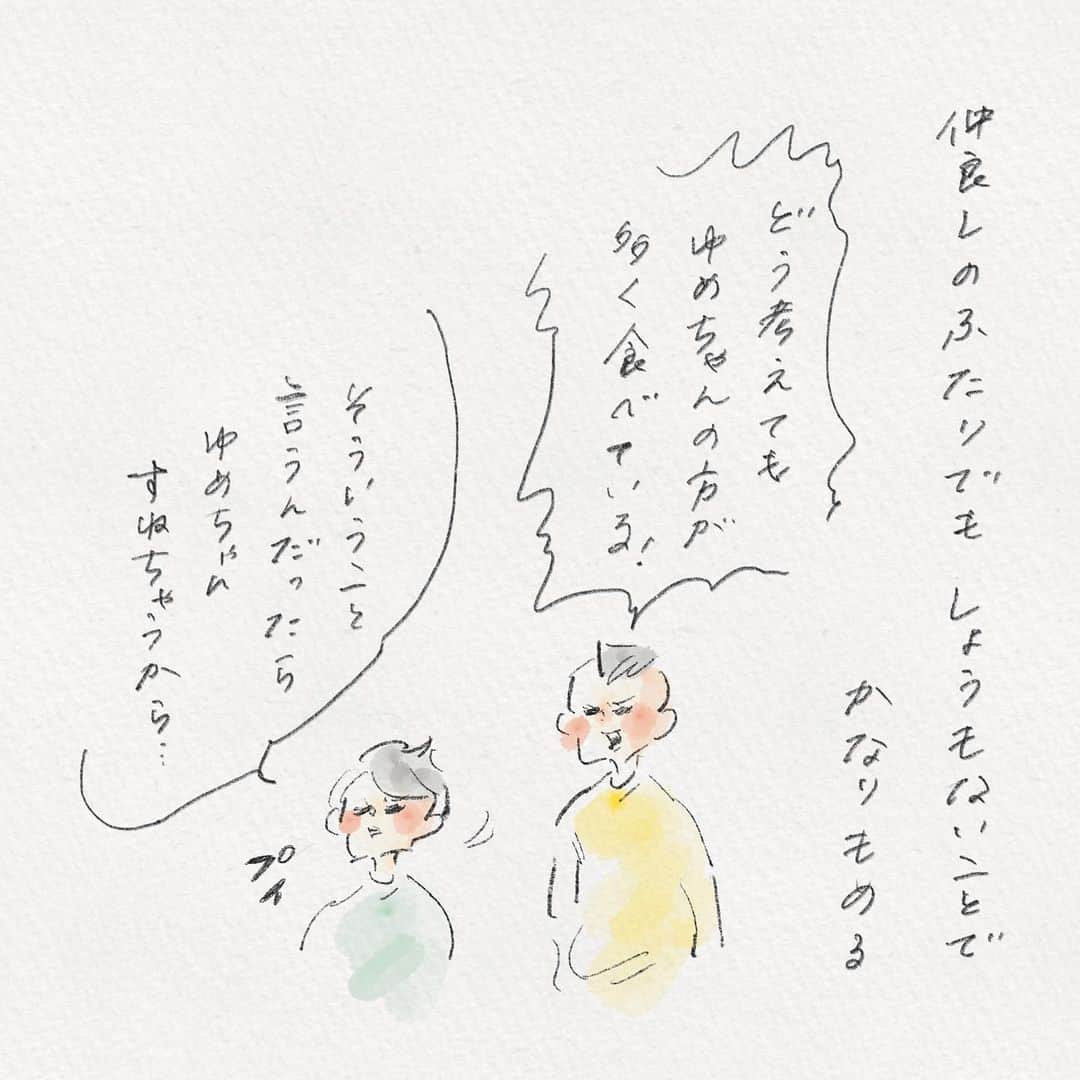 仲良しのふたりでも しょうもないことで
かなりもめる
どう考えても
ゆめちゃんの方が
多く食べている!
そういうこと
言うんだったら
ゆめちゃん
すねちゃうから…
プイ